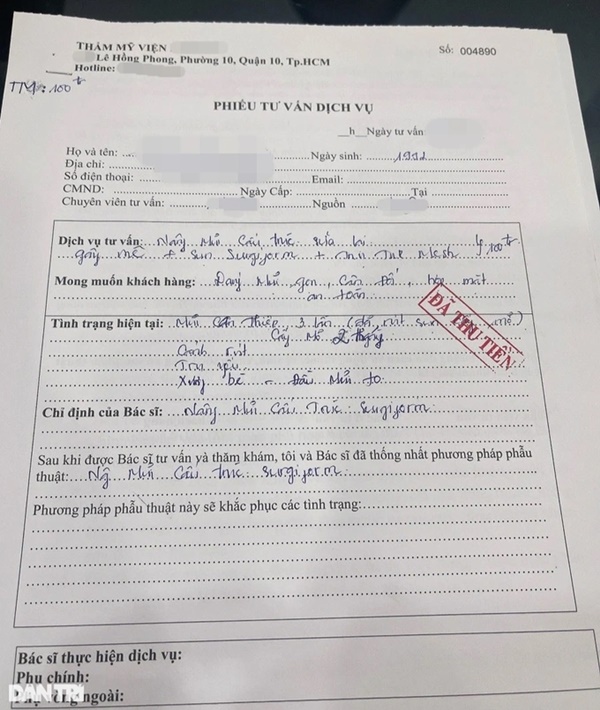 THẨM MỸ VIỆN
Lê Hồng Phong, Phường 10, Quận 10, Tp.HCM
Hotline:
Số: 004890
TM: 100t
PHIẾU TƯ VẤN DỊCH VỤ
__h__Ngày tư vấn
Họ và tên: Ngày sinh: 1992
Địa chỉ:
Số điện thoại: Email:
CMND: Ngày Cấp: Tại
Chuyên viên tư vấn: Nguồn
Dịch vụ tư vấn: Nâng Mũi Cấu trúc sửa lại
gây mê + Sụn Surgiform + Mesh 100t
Mong muốn khách hàng: Dáng Mũi gọn, Cân Đối, hợp mặt
an toàn
ĐÃ THU TIỀN
Tình trạng hiện tại: Mũi Can Thiệp 3 lần (đã rút sụn
2 tháng
Xương bè - Đầu Mũi to
Chỉ định của Bác sĩ: Nâng Mũi Cấu Trúc Surgiform
Sau khi được Bác sĩ tư vấn và thăm khám, tôi và Bác sĩ đã thống nhất phương pháp phẫu
thuật: Ng Mũi Cấu trúc Surgiform
Phương pháp phẫu thuật này sẽ khắc phục các tình trạng:
Bác sĩ thực hiện dịch vụ:
Phụ chính:
ngoài:
DÂN TRÍ